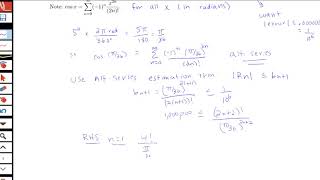 Note: cos x = Σ_{n=0}^{∞} (-1)^n x^{2n}/(2n)! for all x (in radians)
want
|error| <
1/10^6
5° × 2π rad/360° = 5π/180 = π/36
so cos(π/36) = Σ_{n=0}^{∞} (-1)^n (π/36)^{2n}/(2n)! alt series
Use Alt. series estimation thm |Rn| ≤ bn+1
bn+1 = (π/36)^{2(n+1)}/(2(n+1))! ≤ 1/10^6
1,000,000 ≤ (2n+2)!/(π/36)^{2n+2}
RHS n=1 4!
π/36